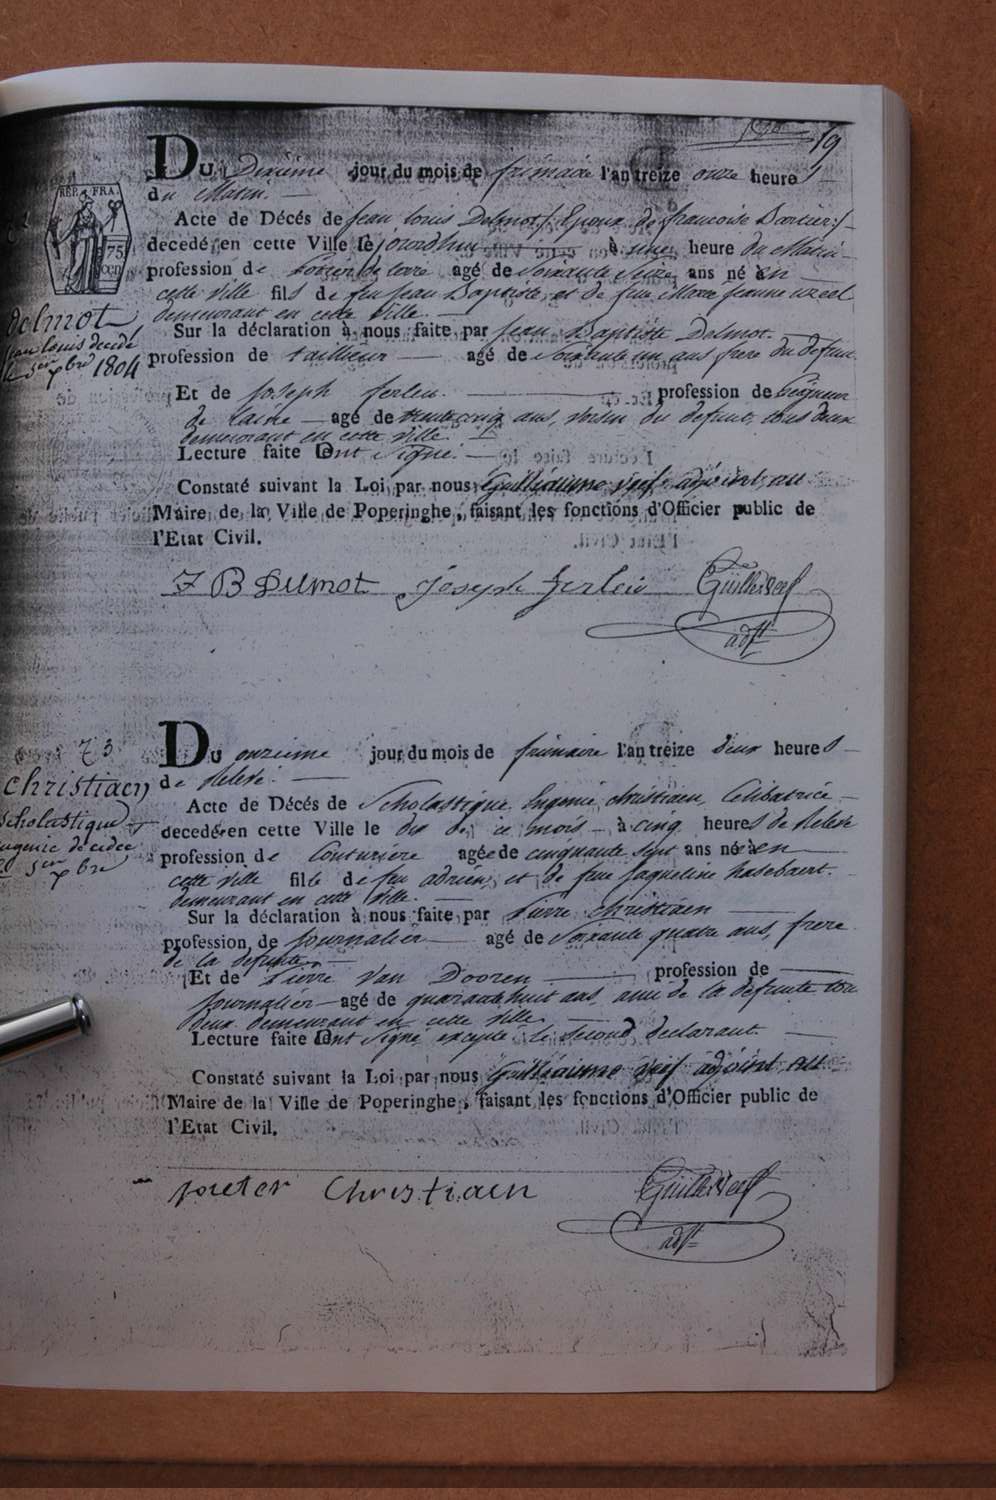 19
Du Dixieme jour du mois de frimaire l'an treize onze heures
du Matin.
REP. FRA.
75
cen
Acte de Décés de Jean Louis Delmot / Epoux de francoise Bartier /
decedé en cette Ville le jourdhui à une heure du Matin
profession de agé de Soixante ans né en
cette ville fils de feu Jean Baptiste et de feue Marie Jeanne
demeurant en cette Ville.
Delmot
Jean Louis decedé
1804
Sur la déclaration à nous faite par Jean Baptiste Delmot.
profession de tailleur agé de Soixante un ans frere du defunt
Et de Joseph ferlein profession de Peigneur
de laine agé de trente cinq ans, voisin du defunt, tous deux
demeurant en cette ville.
Lecture faite ont Signé.
Constaté suivant la Loi par nous Guilliaume Veif adjoint au
Maire de la Ville de Poperinghe, faisant les fonctions d'Officier public de
l'Etat Civil.
J B Dumot Joseph ferlein
adjt
73
Christiaen
Scholastique
eugenie decedee
5 en xbre
Du onzeime jour du mois de frimaire l'an treize deux heures
de Relevé.
Acte de Décés de Scholastique Eugenie Christiaen, Celibatrice
decedée en cette Ville le dix de ce mois à cinq heures de Relevé
profession de Couturiere agée de cinquante sept ans née en
cette ville fille de feu adrien, et de feue Jaqueline hasebaert.
demeurant en cette Ville.
Sur la déclaration à nous faite par Pierre Christiaen
profession de Journalier agé de Soixante quatre ans, frere
de la defunte
Et de Pierre Van Dooren profession de
Journalier agé de quarante huit ans, ami de la defunte tou
deux demeurant en cette ville
Lecture faite ont Signé excepté le Second declarant
Constaté suivant la Loi par nous Guilliaume Veif adjoint au
Maire de la Ville de Poperinghe, faisant les fonctions d'Officier public de
l'Etat Civil.
pieter Christiaen
adjt